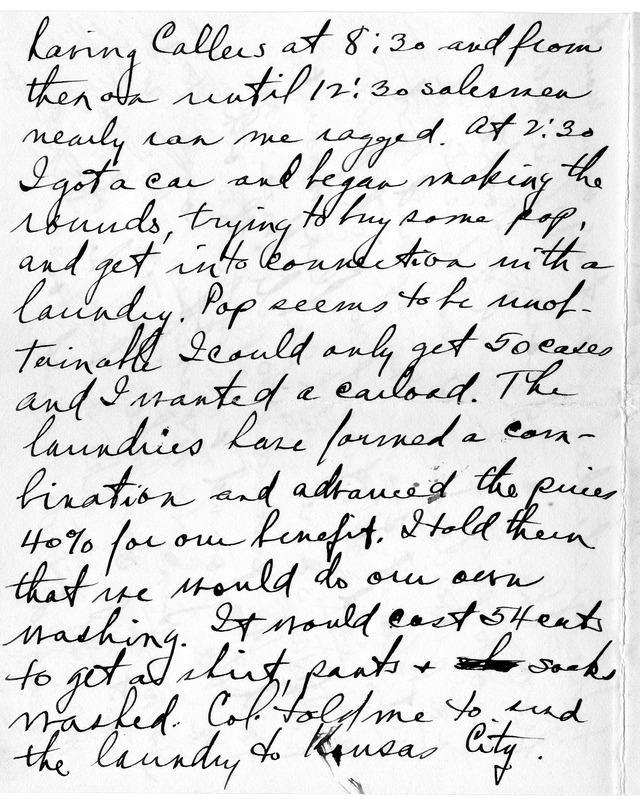 having Callers at 8:30 and from
then on until 12:30 salesmen
nearly ran me ragged. At 2:30
I got a car and began making the
rounds, trying to buy some pop,
and get into connection with a
laundry. Pop seems to be unob-
tainable I could only get 50 cases
and I wanted a carload. The
laundries have formed a com-
bination and advanced the prices
40% for our benefit. I told them
that we would do our own
washing. It would cost 54 cents
to get a shirt, pants + socks
washed. Col. told me to send
the laundry to Kansas City.